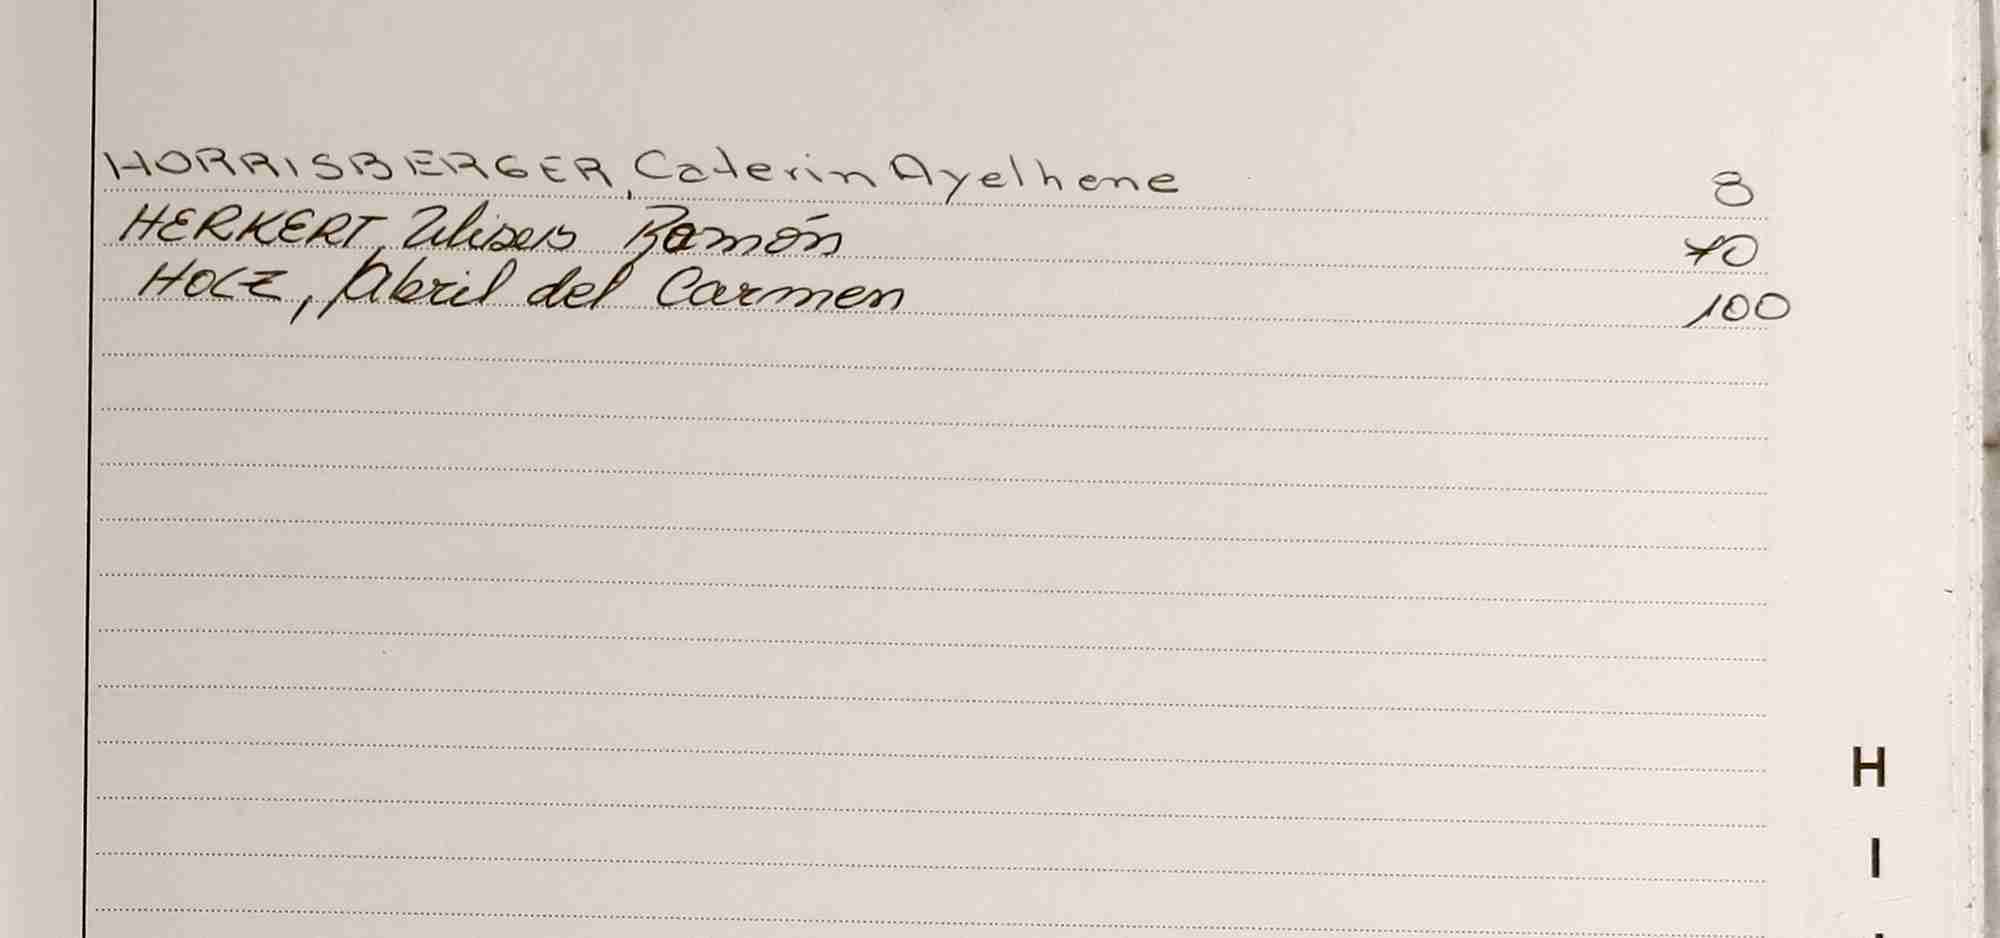 HORRISBERGER, Caterin Ayelhene 8
HERKERT, Ulises Ramón 70
HOLZ, Abril del Carmen 100
H
I